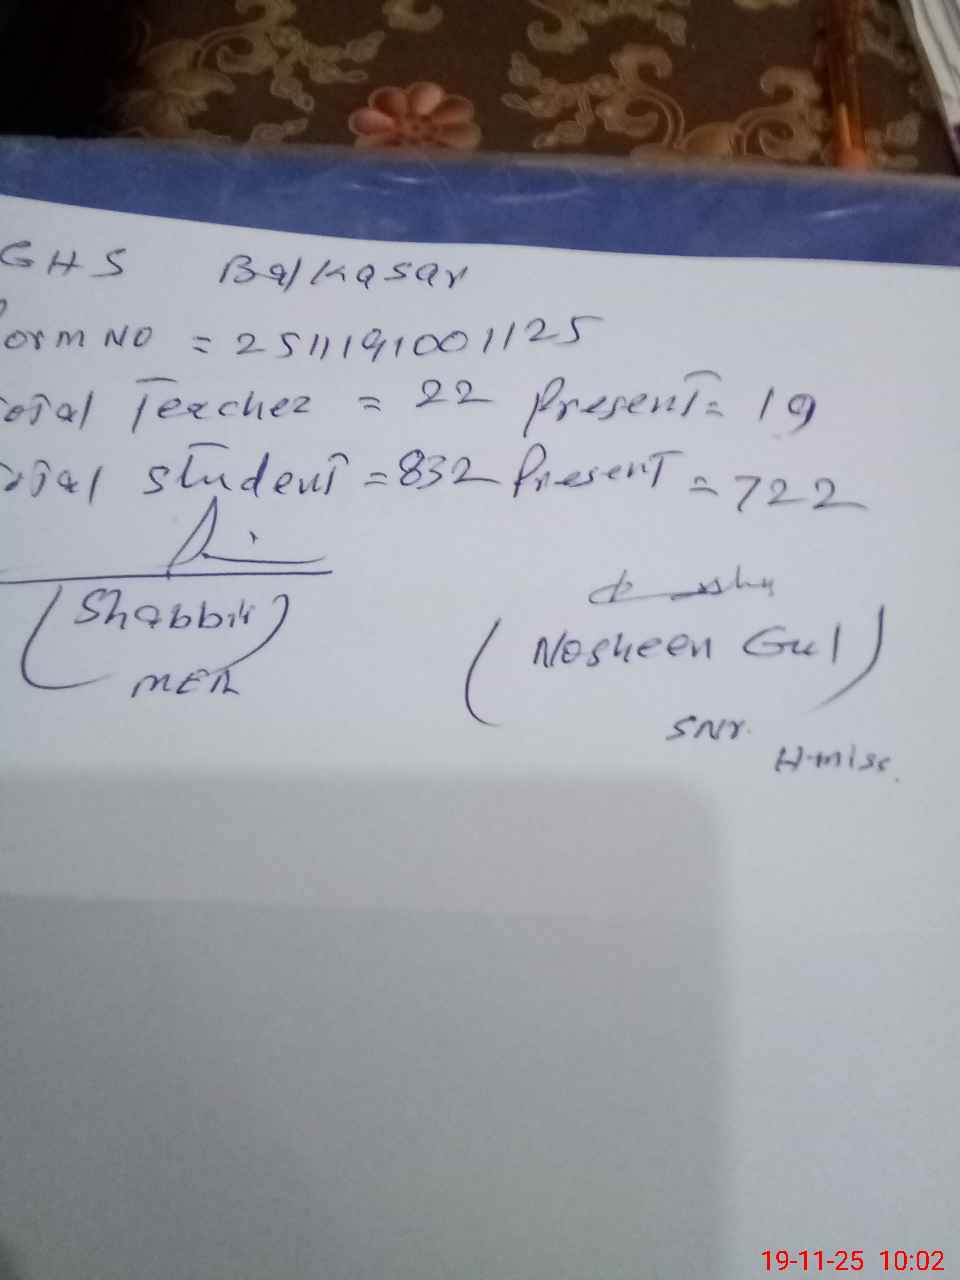 GHS Balkasar
Form NO = 2511191001125
Total Teacher = 22 Present = 19
Total student = 832 Present = 722
(Shabbir)
MEA
(Nosheen Gul)
SNr.
H-miss.
19-11-25 10:02